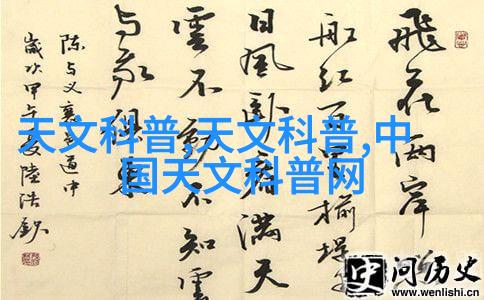 飛花兩岸
船紅百里榆堤
日風卧看滿天
雲不動不知雲
与我俱東
陈与义襄邑道中
歲次甲午夏陸浩
天文科普,天文科普,中
国天文科普网
问历史
www.wenlishi.cn